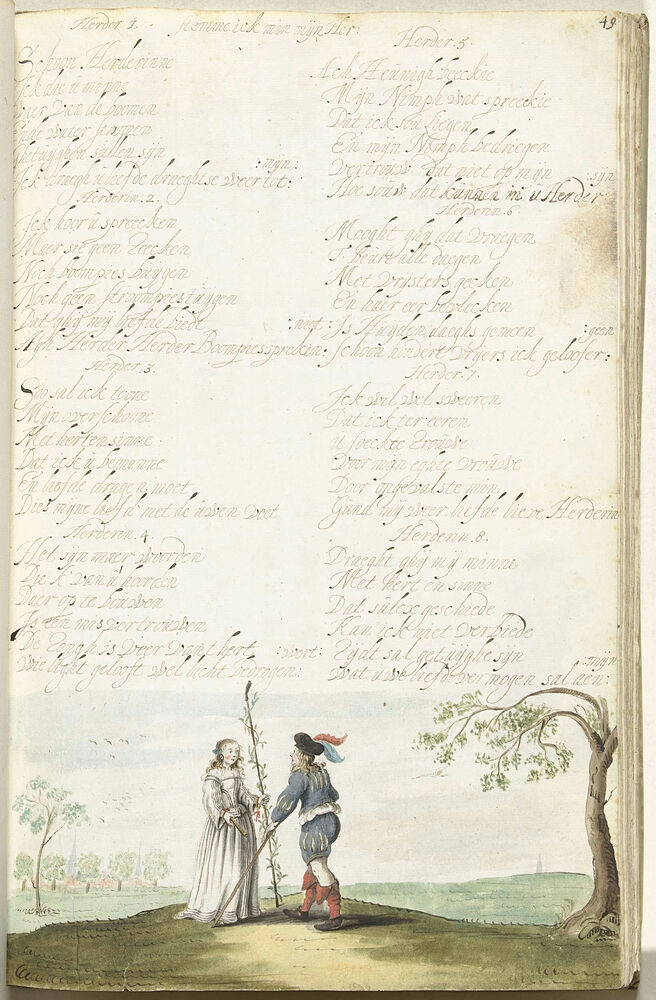 49
Herder 1. Stemme ick min mijn Her:
Schoon Herderinne
Ick die u minne
Voor van de boomen
water stroomen
Ghetuyghen sullen sijn
Ick draegh u liefde draeght se weer tot: :mijn:
Herderin. 2.
Ick hoor u spreecken
Maer sie geen teecken
Noch boompies buygen
Noch geen stroompies tuygen
Dat ghij mij liefde biedt
Agh Herder Herder Boompies spreken: :niet:
Herder. 3.
Soo sal ick toone
Mijn overschoone
Met herten sinne
Dat ick u beminne
En liefde dragen moet
Dies mijne liefd' met de uwen voet
Herderin. 4.
Het sijn maer woorden
Die ick van u hoorden
Daer op te bouwen
Is een misvertrouwen
De Tongh is veer van t hert
Wie light gelooft wel licht bedrogen: :wert:
Herder. 5.
Ach Heunigh beeckie
Mijn Nimph wat spreeckie
Dat ick sou liegen
En mijn Nimph bedriegen
Vertrouw dat niet op mijn
Hoe souw dat kunnen in u Herder :sijn
Herderin. 6.
Mooght ghij dit vraegen
T'Beurt alle daegen
Met vrijsters gecken
En haer eer bevlecken
Is Huyden daeghs gemeen
Schoon hundert vrijers ick geloofer: :geen
Herder. 7.
Ick wil wel sweeren
Dat ick ter eeren
u soeckte trouwe
Voor mijn eghte vrouwe
Door ongevalste min
Gund mij weer liefde lieve Herderin
Herderin. 8.
Draeght ghij mij minne
Met hert en sinne
Dat sulcx geschiede
Kan ick niet verbiede
Tijdt sal getuyghe sijn
Wat uwe liefde vermogen sal aen: :mijn